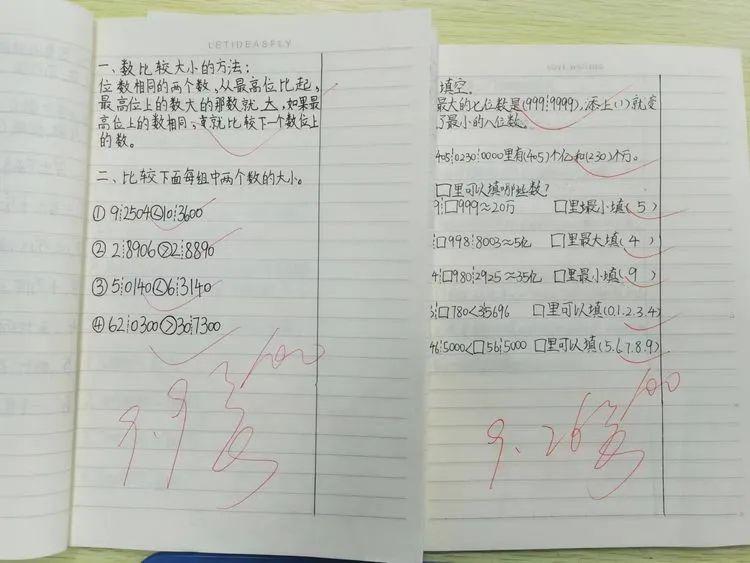 LETIDEASFLY
一、数比较大小的方法:
位数相同的两个数,从最高位比起,
最高位上的数大的那数就大,如果最
高位上的数相同,就比较下一个数位上
的数。
二、比较下面每组中两个数的大小。
① 9┊2504<10┊3600
② 2┊8906>2┊8890
③ 5┊0140<6┊3140
④ 62┊0300>30┊7300
100
9.9
填空.
最大的七位数是(999┊9999),添上(1)就变
了最小的八位数.
405┊0230┊0000里有(405)个亿和(230)个万。
□里可以填哪些数?
9┊□999≈20万 □里最小填(5)
□998┊8003≈5亿 □里最大填(4)
4┊□980┊2925≈35亿 □里最小填(9)
□780<3┊5696 □里可以填(0.1.2.3.4)
46┊5000<□56┊5000 □里可以填(5.6.7.8.9)
100
9.26